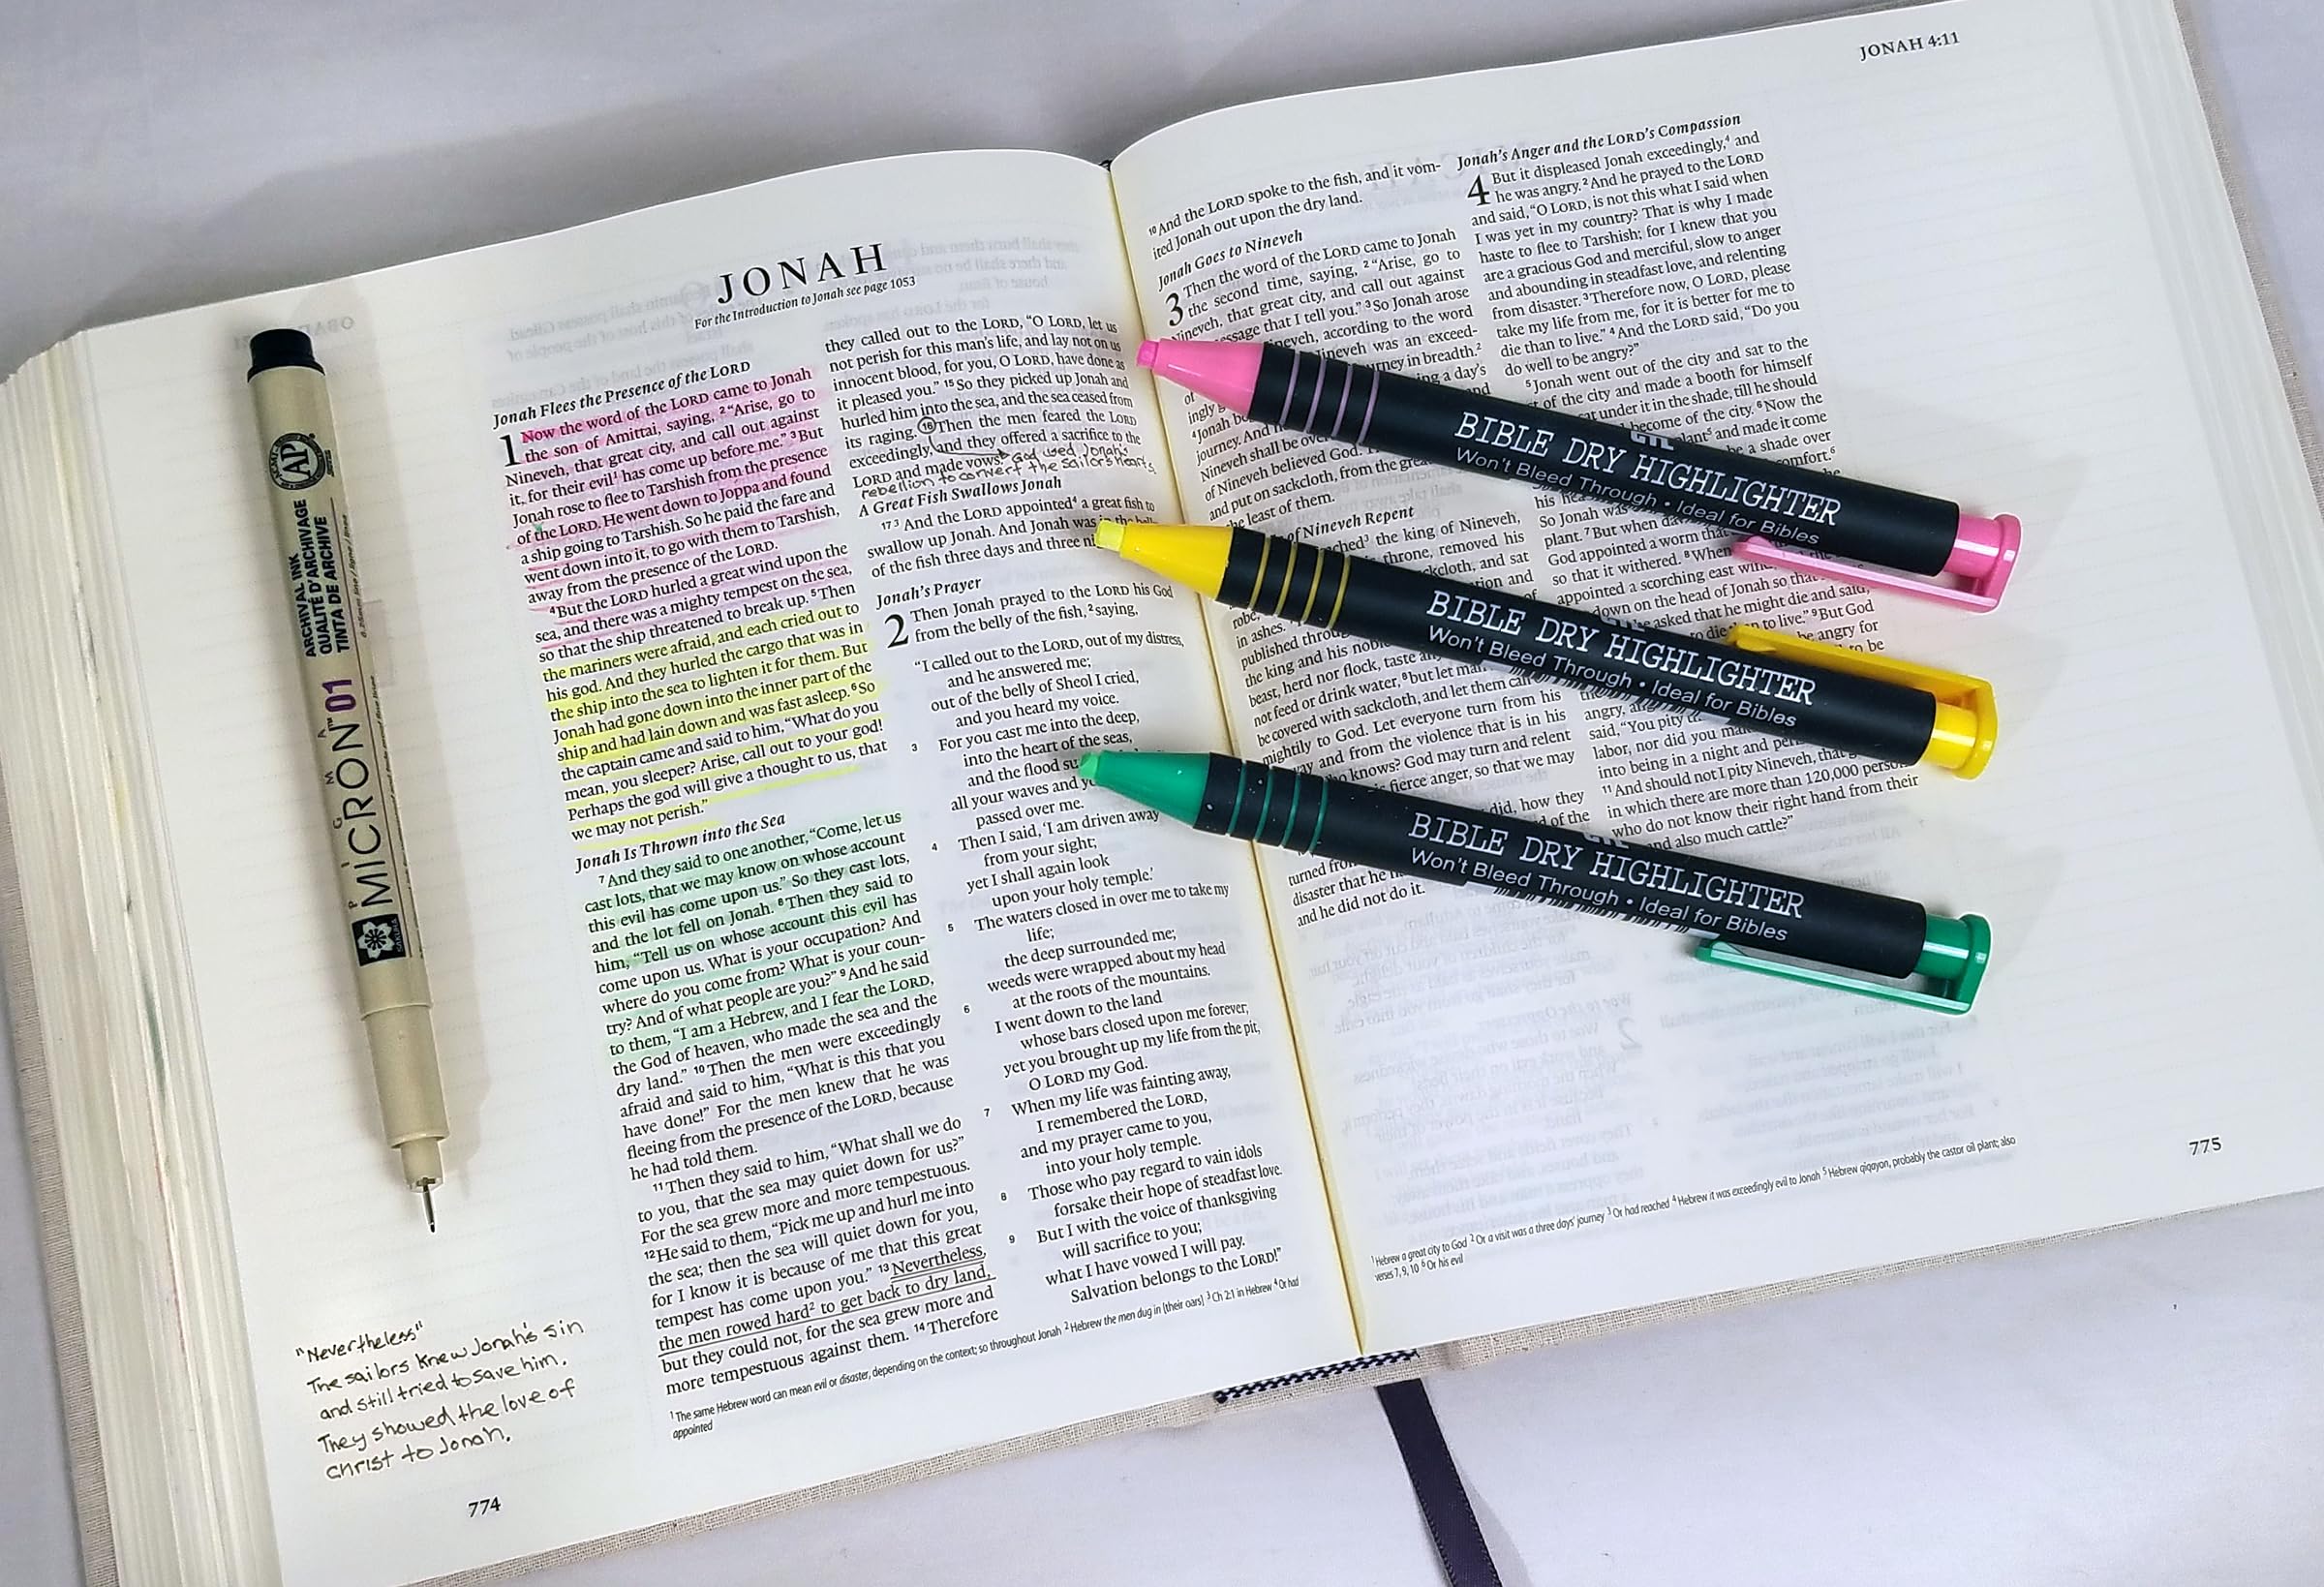 JONAH 4:11
JONAH
For the Introduction to Jonah see page 1053
Jonah Flees the Presence of the LORD
1 Now the word of the LORD came to Jonah
the son of Amittai, saying, 2 “Arise, go to
Nineveh, that great city, and call out against
it, for their evil1 has come up before me.” 3 But
Jonah rose to flee to Tarshish from the presence
of the LORD. He went down to Joppa and found
a ship going to Tarshish. So he paid the fare and
went down into it, to go with them to Tarshish,
away from the presence of the LORD.
4 But the LORD hurled a great wind upon the
sea, and there was a mighty tempest on the sea,
so that the ship threatened to break up. 5 Then
the mariners were afraid, and each cried out to
his god. And they hurled the cargo that was in
the ship into the sea to lighten it for them. But
Jonah had gone down into the inner part of the
ship and had lain down and was fast asleep. 6 So
the captain came and said to him, “What do you
mean, you sleeper? Arise, call out to your god!
Perhaps the god will give a thought to us, that
we may not perish.”
Jonah Is Thrown into the Sea
7 And they said to one another, “Come, let us
cast lots, that we may know on whose account
this evil has come upon us.” So they cast lots,
and the lot fell on Jonah. 8 Then they said to
him, “Tell us on whose account this evil has
come upon us. What is your occupation? And
where do you come from? What is your coun-
try? And of what people are you?” 9 And he said
to them, “I am a Hebrew, and I fear the LORD,
the God of heaven, who made the sea and the
dry land.” 10 Then the men were exceedingly
afraid and said to him, “What is this that you
have done!” For the men knew that he was
fleeing from the presence of the LORD, because
he had told them.
11 Then they said to him, “What shall we do
to you, that the sea may quiet down for us?”
For the sea grew more and more tempestuous.
12 He said to them, “Pick me up and hurl me into
the sea; then the sea will quiet down for you,
for I know it is because of me that this great
tempest has come upon you.” 13 Nevertheless,
the men rowed hard2 to get back to dry land,
but they could not, for the sea grew more and
more tempestuous against them. 14 Therefore
they called out to the LORD, “O LORD, let us
not perish for this man’s life, and lay not on us
innocent blood, for you, O LORD, have done as
it pleased you.” 15 So they picked up Jonah and
hurled him into the sea, and the sea ceased from
its raging. 16 Then the men feared the LORD
exceedingly, and they offered a sacrifice to the
LORD and made vows. God used Jonah's
rebellion to convert the sailors hearts.
A Great Fish Swallows Jonah
17 3 And the LORD appointed4 a great fish to
swallow up Jonah. And Jonah was in the belly
of the fish three days and three
Jonah’s Prayer
2 Then Jonah prayed to the LORD his God
from the belly of the fish, 2 saying,
“I called out to the LORD, out of my distress,
and he answered me;
out of the belly of Sheol I cried,
and you heard my voice.
3 For you cast me into the deep,
into the heart of the seas,
and the flood
all your waves and
passed over me.
4 Then I said, ‘I am driven away
from your sight;
yet I shall again look
upon your holy temple.’
5 The waters closed in over me to take my
life;
the deep surrounded me;
weeds were wrapped about my head
6 at the roots of the mountains.
I went down to the land
whose bars closed upon me forever;
yet you brought up my life from the pit,
O LORD my God.
7 When my life was fainting away,
I remembered the LORD,
and my prayer came to you,
into your holy temple.
8 Those who pay regard to vain idols
forsake their hope of steadfast love.
9 But I with the voice of thanksgiving
will sacrifice to you;
what I have vowed I will pay.
Salvation belongs to the LORD!”
1 The same Hebrew word can mean evil or disaster, depending on the context; so throughout Jonah 2 Hebrew the men dug in [their oars] 3 Ch 2:1 in Hebrew 4 Or had
appointed
"Nevertheless"
The sailors knew Jonah's sin
and still tried to save him.
They showed the love of
christ to Jonah.
774
10 And the LORD spoke to the fish, and it vom-
ited Jonah out upon the dry land.
Jonah Goes to Nineveh
3 Then the word of the LORD came to Jonah
the second time, saying, 2 “Arise, go to
Nineveh, that great city, and call out against
that I tell you.” 3 So Jonah arose
according to the word
Nineveh was an exceed-
in breadth.2
a day’s
journey. And
Nineveh shall be
of Nineveh believed God.
and put on sackcloth, from the
the least of them.
of Nineveh Repent
the king of Nineveh,
throne, removed his
and sat
in ashes.
and
published
the king and his
beast, herd nor flock, taste
not feed or drink water, 8 but let
be covered with sackcloth, and let them
mightily to God. Let everyone turn from his
and from the violence that is in his
knows? God may turn and relent
fierce anger, so that we may
did, how they
of the
turned
disaster that he
and he did not do it.
Jonah’s Anger and the LORD’s Compassion
4 But it displeased Jonah exceedingly,4 and
he was angry. 2 And he prayed to the LORD
and said, “O LORD, is not this what I said when
I was yet in my country? That is why I made
haste to flee to Tarshish; for I knew that you
are a gracious God and merciful, slow to anger
and abounding in steadfast love, and relenting
from disaster. 3 Therefore now, O LORD, please
take my life from me, for it is better for me to
die than to live.” 4 And the LORD said, “Do you
do well to be angry?”
5 Jonah went out of the city and sat to the
of the city and made a booth for himself
under it in the shade, till he should
become of the city. 6 Now the
and made it come
be a shade over
So Jonah was
plant. 7 But when
God appointed a worm
so that it withered. 8 When
appointed a scorching east
down on the head of Jonah so
asked that he might die and said,
to live.” 9 But God
angry for
to be
angry,
said, “You pity
labor, nor did you
into being in a night and
11 And should not I pity Nineveh, that
in which there are more than 120,000
who do not know their right hand from their
and also much cattle?”
1 Hebrew a great city to God 2 Or a visit was a three days’ journey 3 Or had reached 4 Hebrew it was exceedingly evil to Jonah 5 Hebrew qiqayon, probably the castor oil plant; also
verses 7, 9, 10 6 Or his evil
775
BIBLE DRY HIGHLIGHTER
Won't Bleed Through • Ideal for Bibles
BIBLE DRY HIGHLIGHTER
Won't Bleed Through • Ideal for Bibles
BIBLE DRY HIGHLIGHTER
Won't Bleed Through • Ideal for Bibles
AP
ARCHIVAL INK
QUALITÉ D'ARCHIVAGE
TINTA DE ARCHIVE
PIGMA
MICRON™ 01
SAKURA